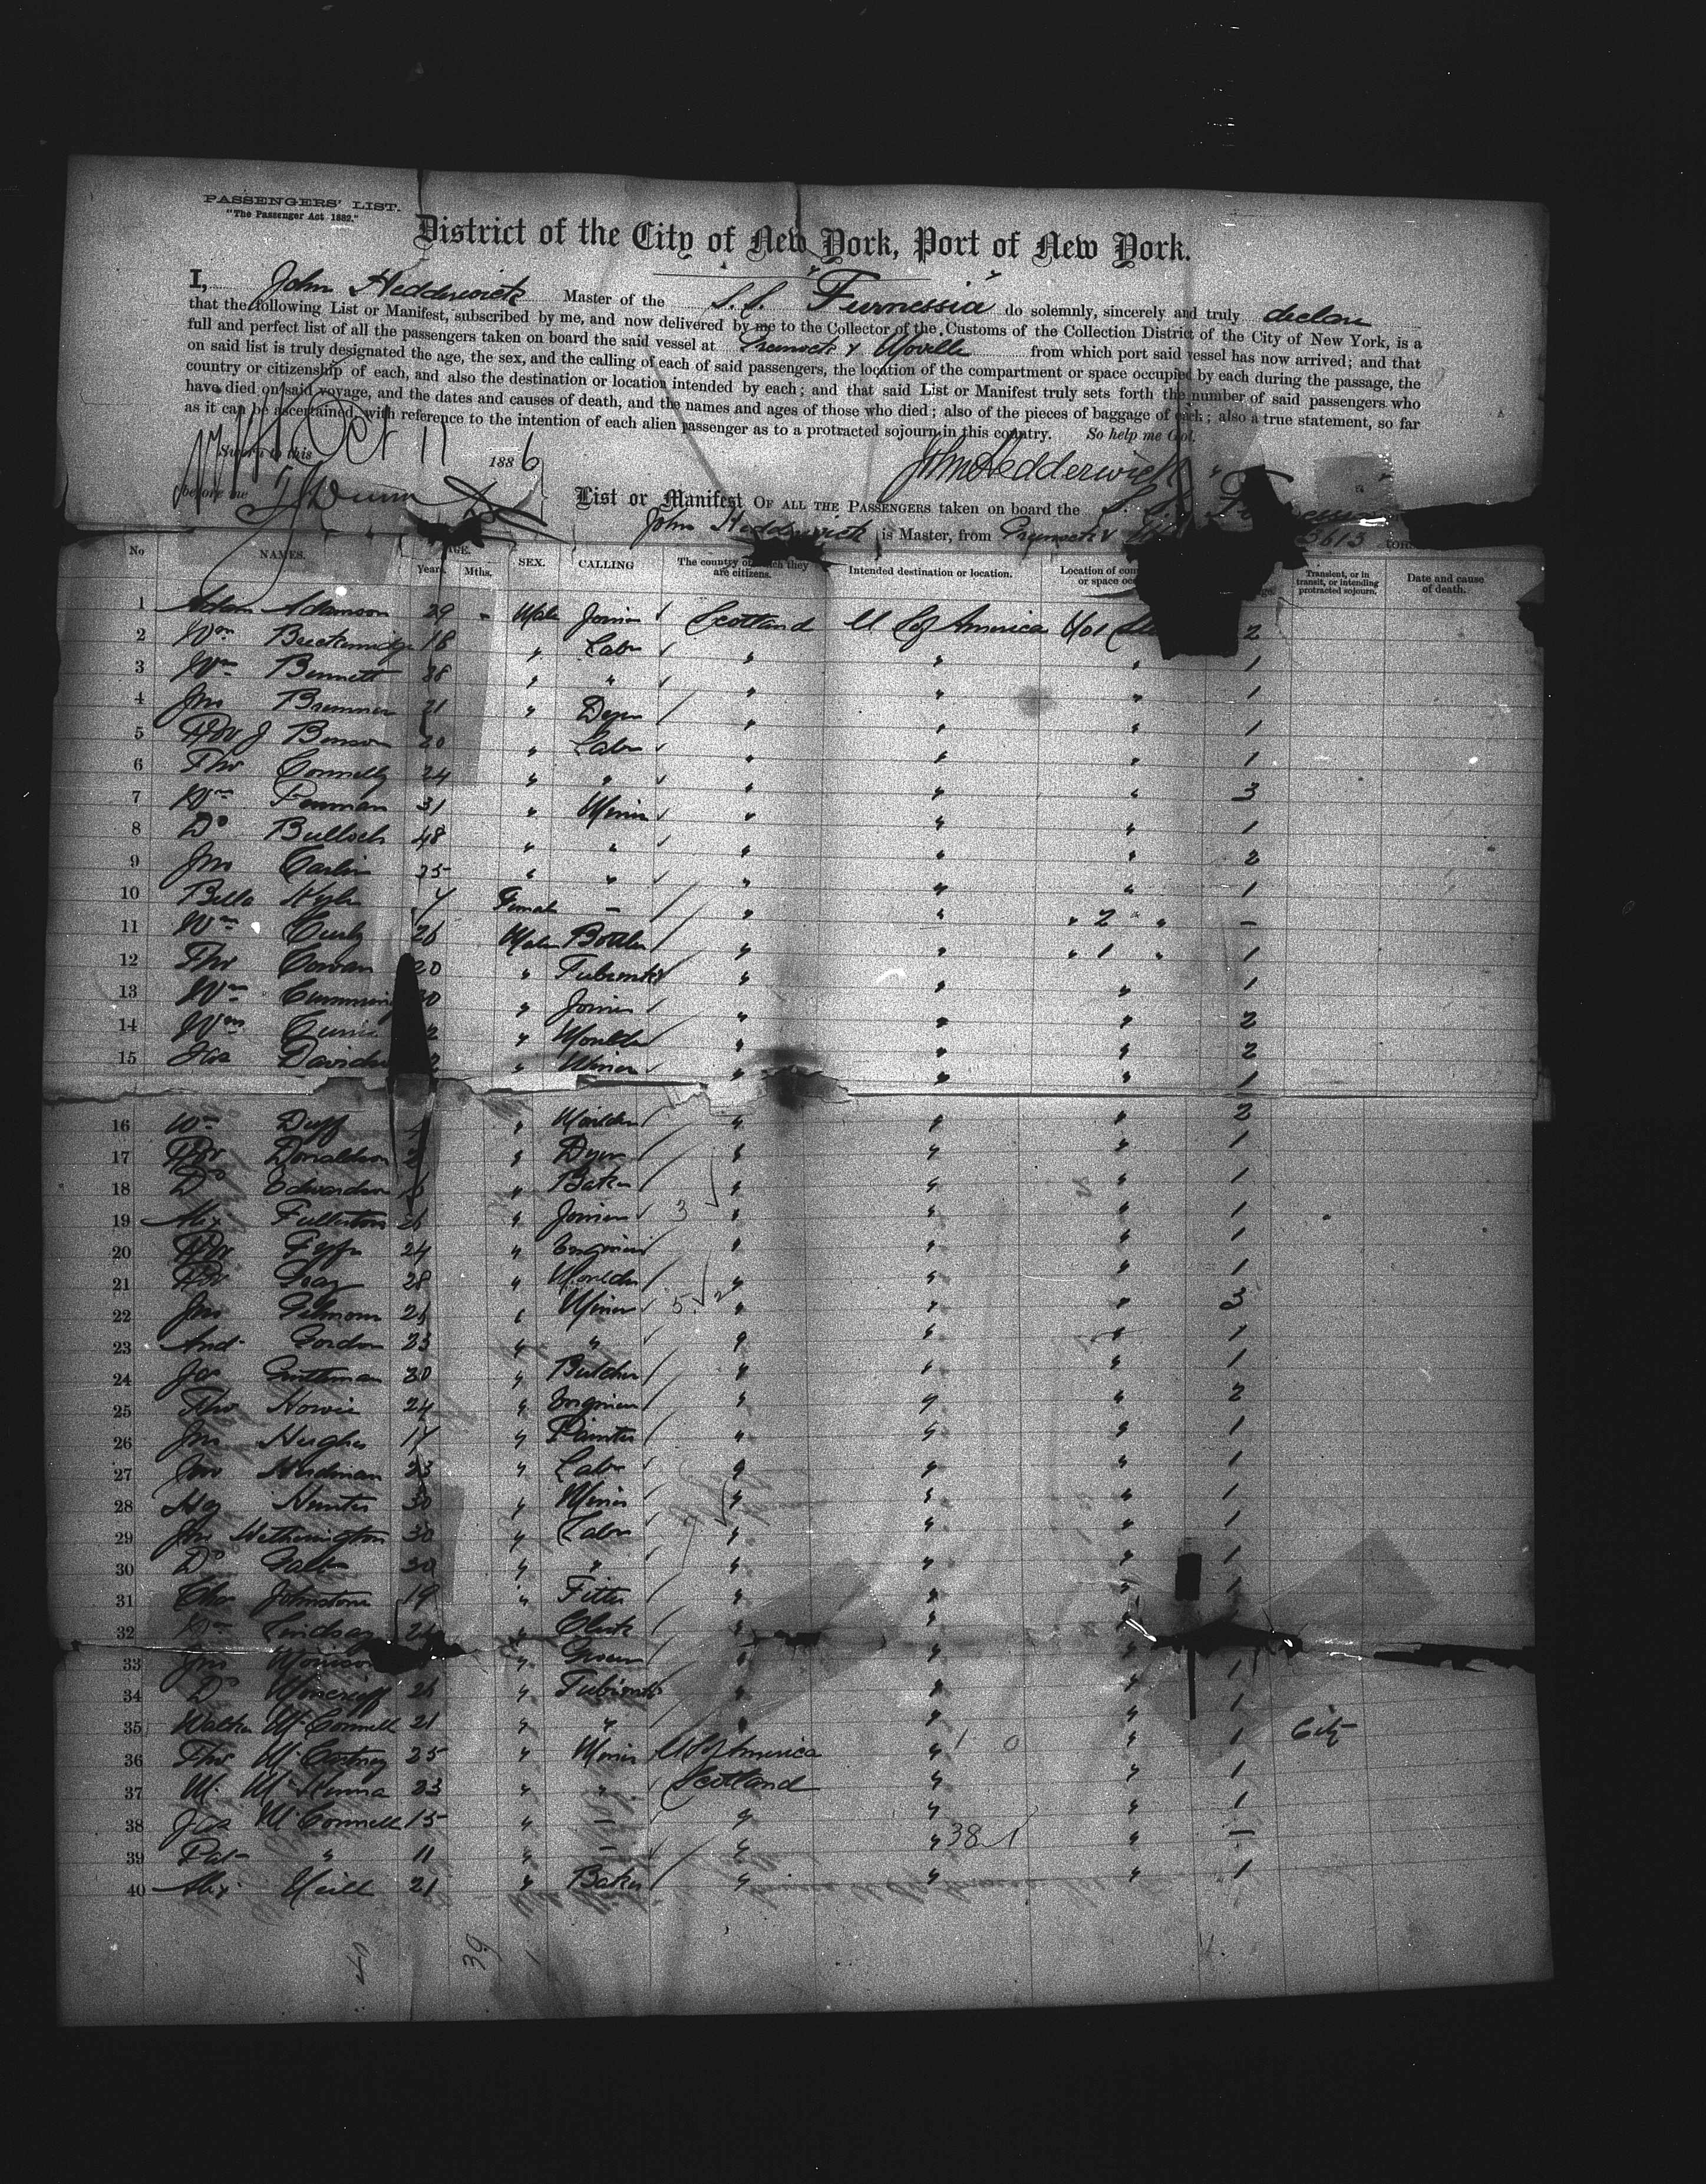 PASSENGERS' LIST.
"The Passenger Act 1882."
District of the City of New York, Port of New York.
I, John Hedderwick Master of the S.S. "Furnessia" do solemnly, sincerely and truly declare
that the following List or Manifest, subscribed by me, and now delivered by me to the Collector of the Customs of the Collection District of the City of New York, is a
full and perfect list of all the passengers taken on board the said vessel at Greenock & Moville from which port said vessel has now arrived; and that
on said list is truly designated the age, the sex, and the calling of each of said passengers, the location of the compartment or space occupied by each during the passage, the
country or citizenship of each, and also the destination or location intended by each; and that said List or Manifest truly sets forth the number of said passengers who
have died on said voyage, and the dates and causes of death, and the names and ages of those who died; also of the pieces of baggage of each; also a true statement, so far
as it can be ascertained, with reference to the intention of each alien passenger as to a protracted sojourn in this country. So help me God.
Sworn to this Oct 11 1886
John Hedderwick
before me
List or Manifest OF ALL THE PASSENGERS taken on board the S.S.
John Hedderwick is Master, from Greenock & 5613
No NAMES. AGE. Years. Mths. SEX. CALLING The country of which they are citizens. Intended destination or location. Location of or space Transient, or in transit, or intending protracted sojourn. Date and cause of death.
1 Adam Adamson 29 - Male Joiner Scotland U S of America No 1 2
2 Wm Breckenridge 18 " Labr " " " 1
3 Wm Bennett 38 " " " " " 1
4 Jno Bremner 21 " Dyer " " " 1
5 J Benson 20 " Labr " " " 1
6 Thos Connelly 24 " " " " " 3
7 Wm Penman 31 " Miner " " " 1
8 Dd Bulloch 48 " " " " " 2
9 Jno Carlin 25 " " " " " 1
10 Bella Kyle Female - " " " 2 " -
11 Wm Curly 26 Male Bottler " " " 1 " 1
12 Thos Cowan 20 " Tubesmith " " " 1
13 Wm Cumming " Joiner " " " 2
14 Wm Currie " Moulder " " " 2
15 Jas Davids " Miner " " " 1
16 Wm Duff " Moulder " " " 2
17 Donaldson " Dyer " " " 1
18 Dd Edwardson " Baker " " " 1
19 Alex Fullerton 26 " Joiner 3 " " " 1
20 Fyfe 24 " Engineer " " " 1
21 Gray 28 " Moulder " " " 1
22 Jno Gilmour 26 " Miner 5 " " " 3
23 And Gordon 23 " " " " " 1
24 Jas 30 " Butcher " " " 1
25 Thos Howie 24 " Engineer " " " 2
26 Jno Hughes 17 " Painter " " " 1
27 Jno Hardman 23 " Labr " " " 1
28 Hy Hunter 30 " Miner " " " 1
29 Jno Hetherington 30 " Labr " " " 1
30 Dd Galt 30 " " " " " 1
31 Chas Johnstone 19 " Fitter " " " 1
32 Wm Lindsay " Clerk " " "
33 Jno Morrison " Grocer " " " 1
34 Dd Moncrieff 26 " Tubesmith " " " 1
35 Walter McConnell 21 " " " " " 1 City
36 Thos McCartney 25 " Miner U S of America " 1 0 " 1
37 M. McKenna 23 " " Scotland " " 1
38 Jas McConnell 15 " - " " 38 1 " -
39 Pat " 11 " - " " "
40 Alex Neill 21 " Baker " " " 1
39